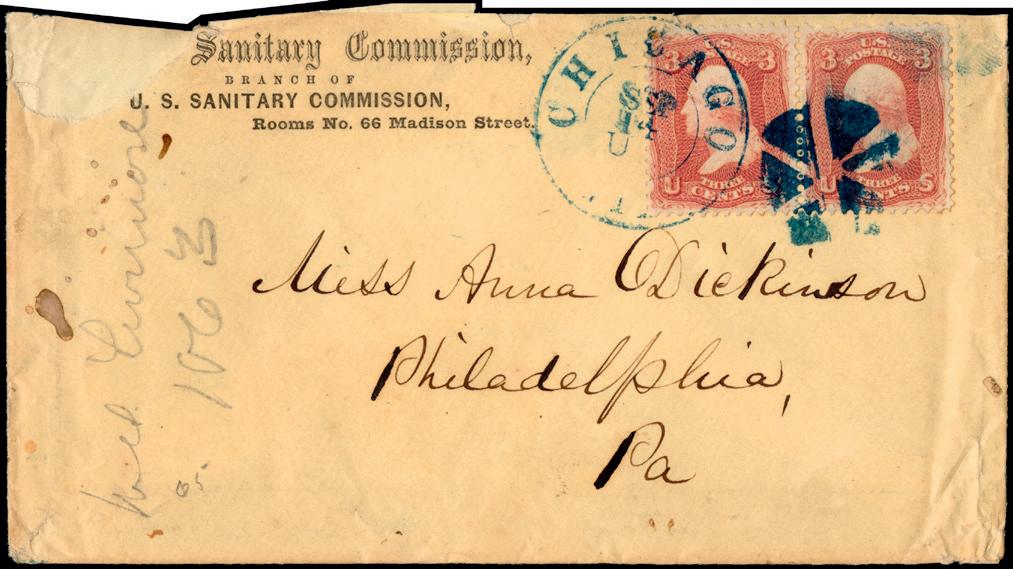 Sanitary Commission,
BRANCH OF
U. S. SANITARY COMMISSION,
Rooms No. 66 Madison Street.
CHICAGO
3 U.S. 3
THREE
U CENTS
3 U.S. 3
POSTAGE
U THREE S
CENTS
Miss Anna Dickinson
Philadelphia,
Pa